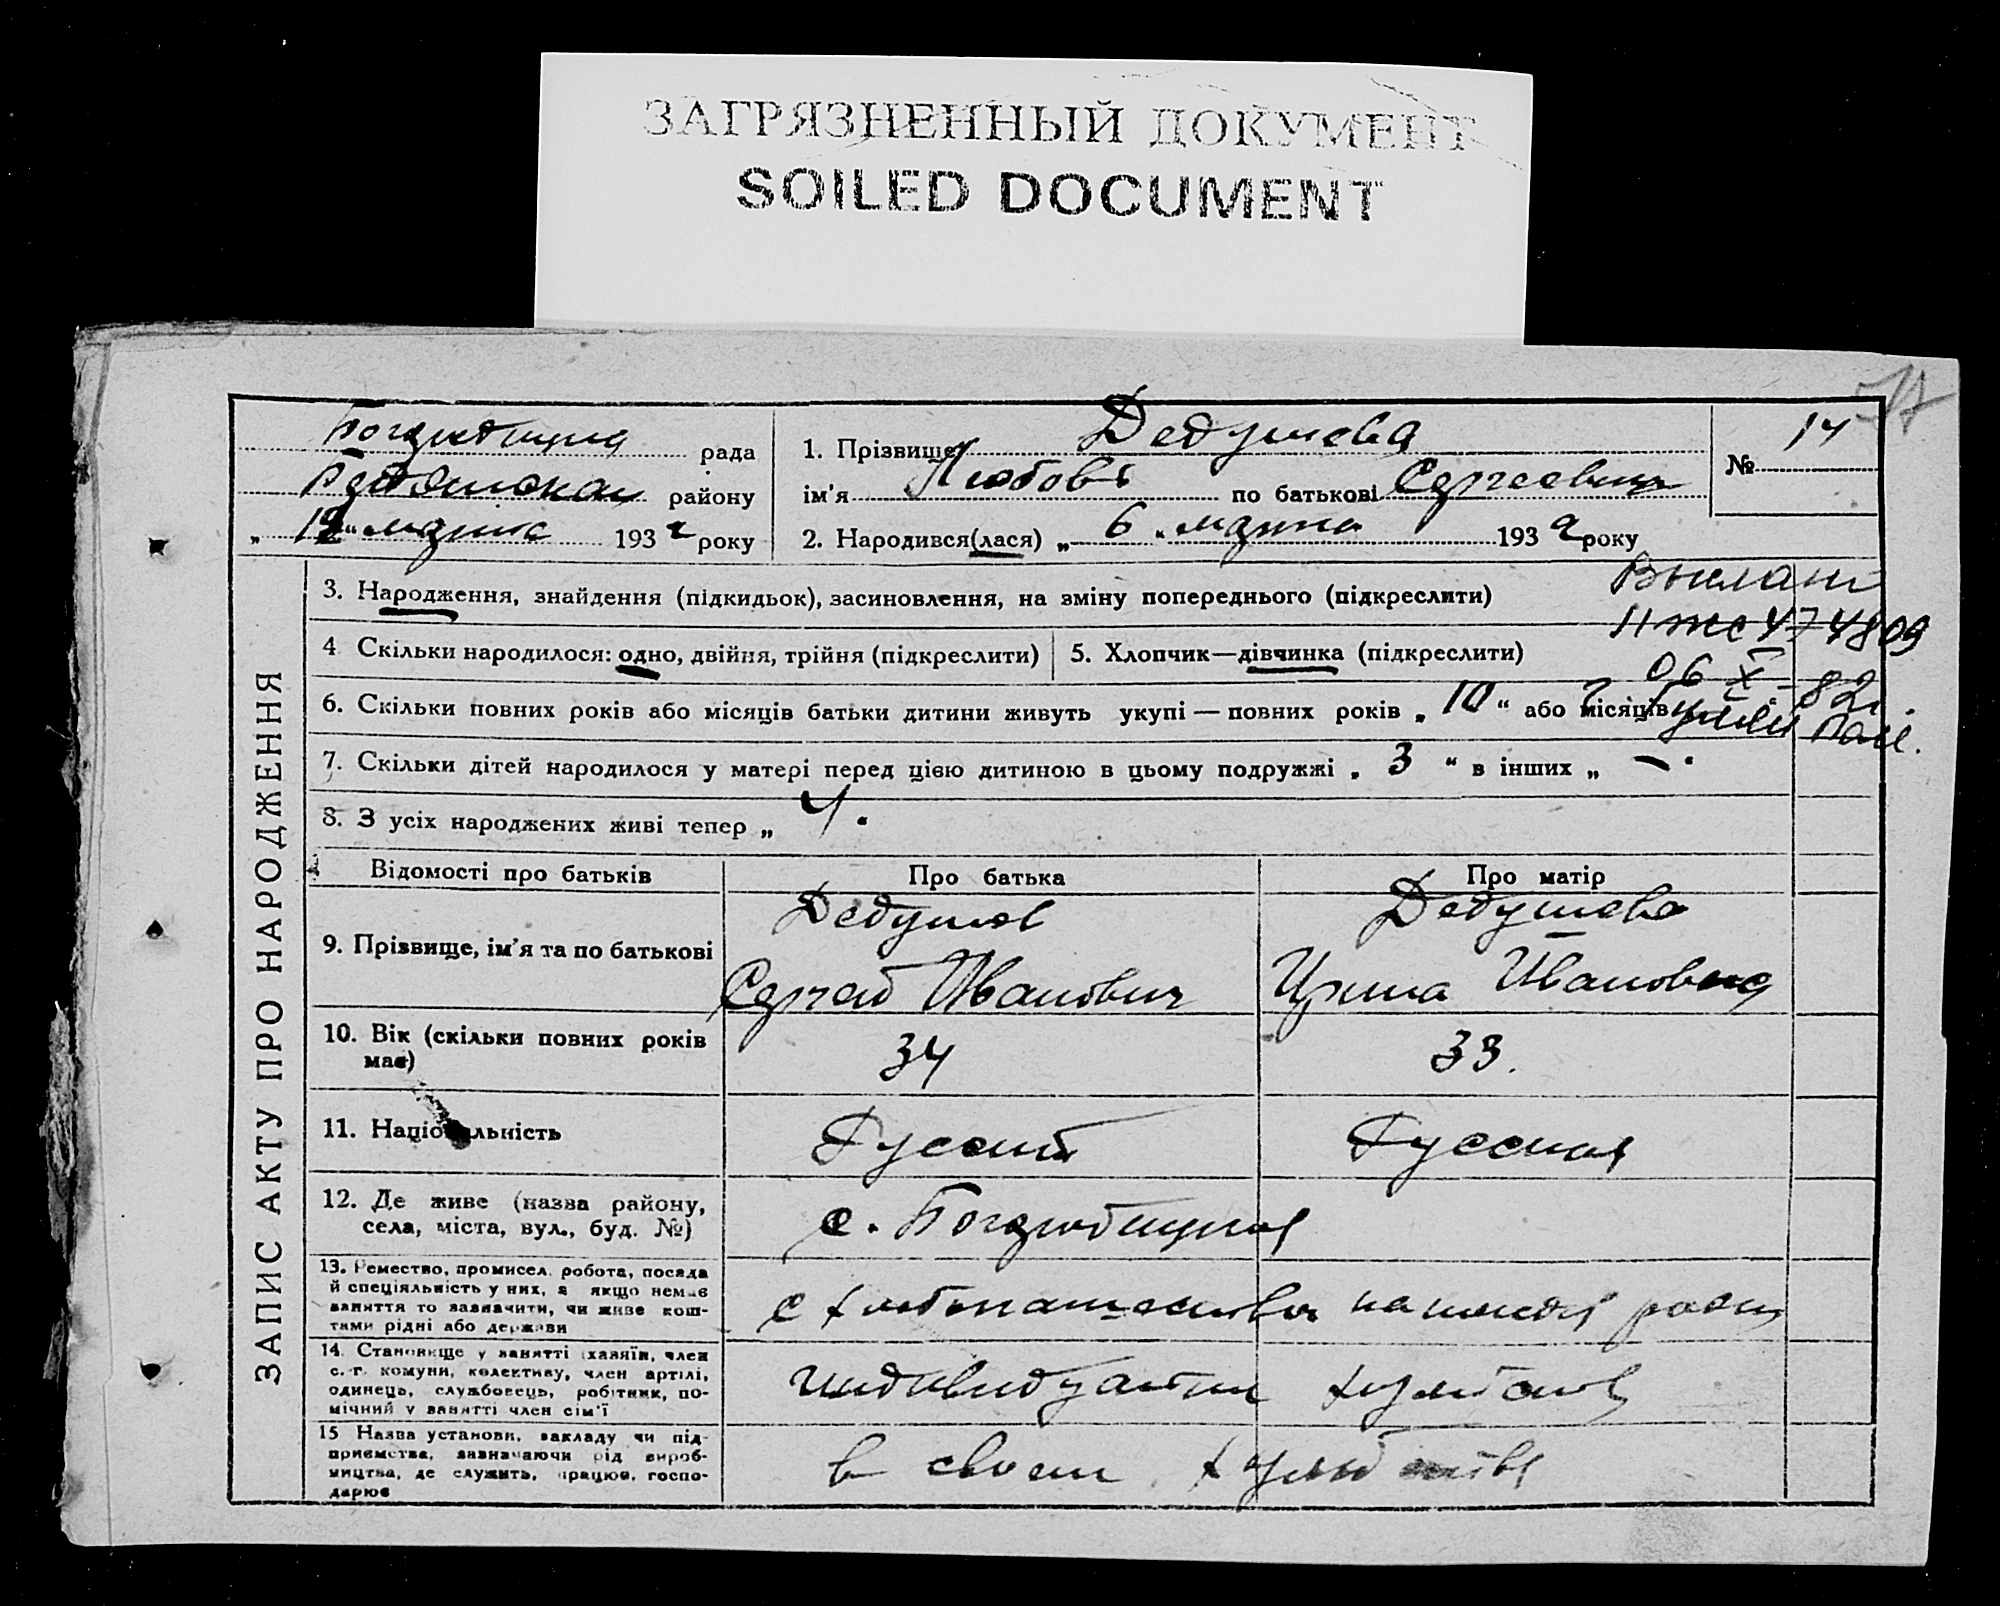 ЗАГРЯЗНЕННЫЙ ДОКУМЕНТ
SOILED DOCUMENT
рада
району
193 2 року
1. Прізвище Дедушева
ім'я Любовь по батькові Сергеевна
2. Народився(лася) „ 6 “ марта 193 2 року
№ 14
ЗАПИС АКТУ ПРО НАРОДЖЕННЯ
3. Народження, знайдення (підкидьок), засиновлення, на зміну попереднього (підкреслити)
4 Скільки народилося: одно, двійня, трійня (підкреслити)
5. Хлопчик—дівчинка (підкреслити)
474809
06 X - 82г.
6. Скільки повних років або місяців батьки дитини живуть укупі — повних років „ 10 “ або місяців
7. Скільки дітей народилося у матері перед цією дитиною в цьому подружжі „ 3 “ в інших „ — “
8. З усіх народжених живі тепер „ 4.
Відомості про батьків
Про батька
Про матір
9. Прізвище, ім'я та по батькові
Дедушев
Сергей Иванович
Дедушева
Ирина Ивановна
10. Вік (скільки повних років має)
34
33.
11. Національність
Русский
Русская
12. Де живе (назва району,
села, міста, вул., буд. №)
с.
13. Ремество, промисел, робота, посада
й спеціяльність у них, а якщо немає
заняття то зазначити, чи живе кош-
тами рідні або держави
14. Становище у занятті (хазяїн, член
с.-г. комуни, колективу, член артілі,
одинець, службовець, робітник, по-
мічний у занятті член сім'ї
15 Назва установи, закладу чи під-
приємства, зазначаючи рід вироб-
ництва, де служить, працює, госпо-
дарює
в своем